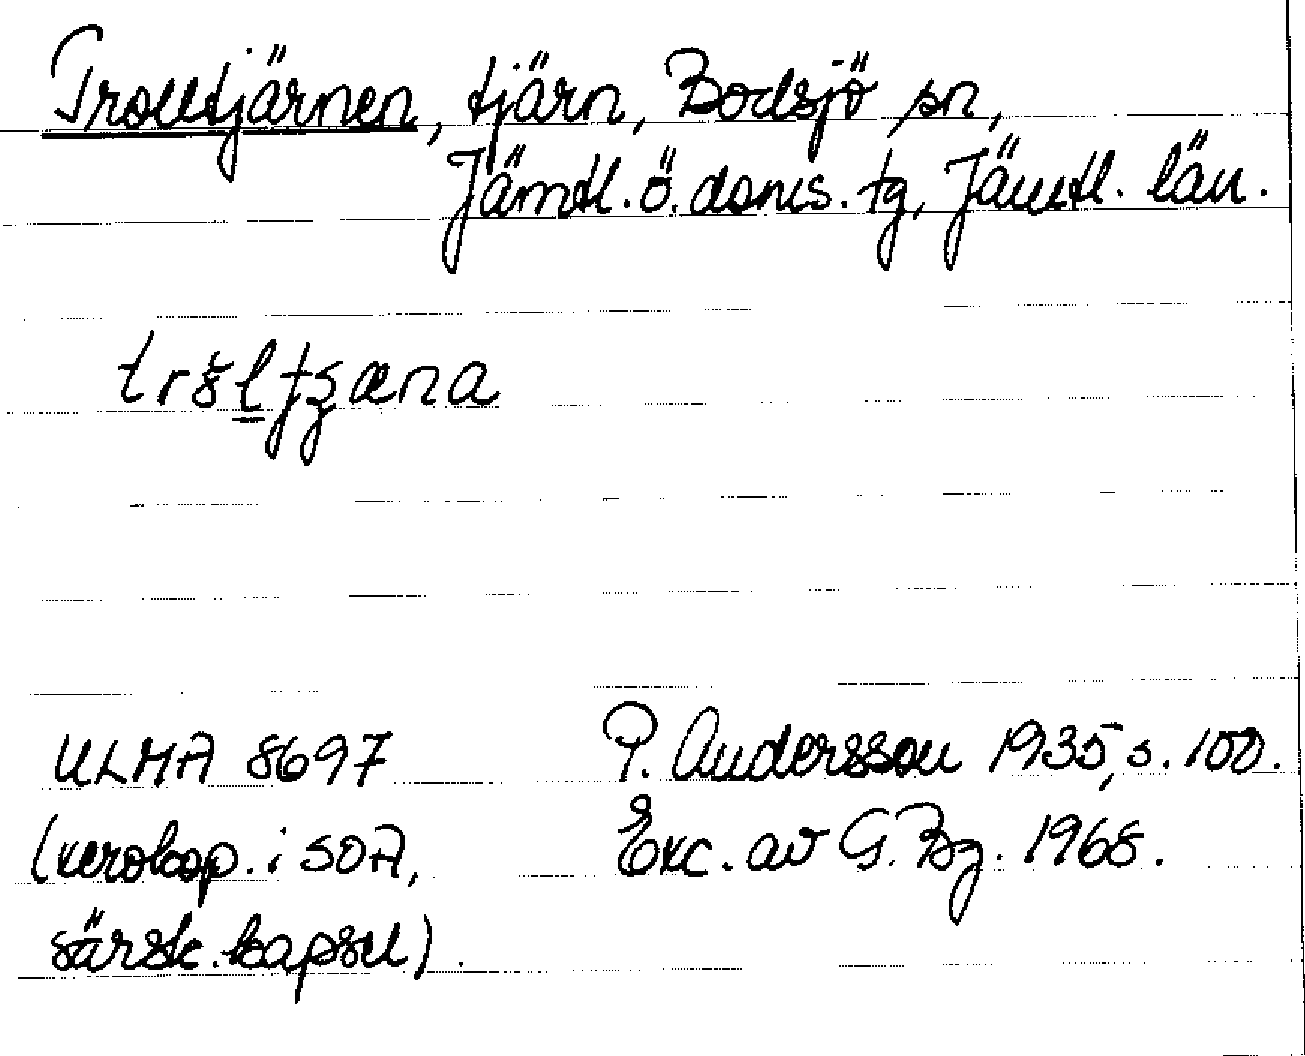 Trolltjärnen, tjärn, Bodsjö sn,
Jämtl. ö. doms. tg, Jämtl. län.
ULMA 8697
(xerokop. i SOA,
särsk. kapsel).
P. Andersson 1935, s. 100.
Exc. av G. Bg. 1968.